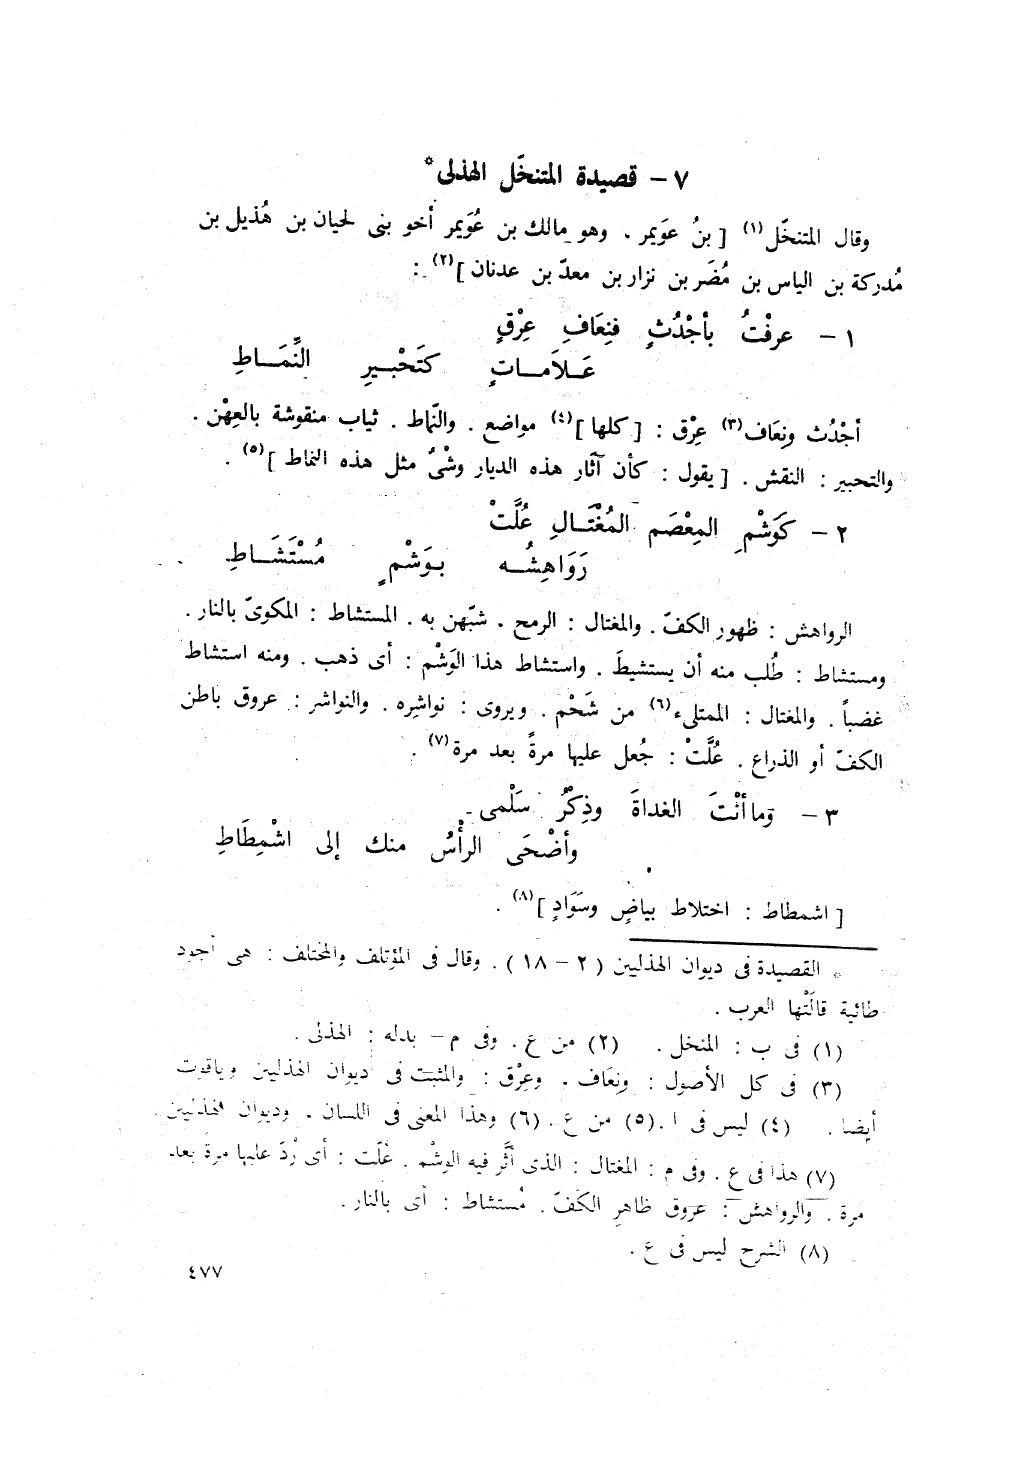 ٧ – قصيدة المتنخّل الهذلى*
وقال المتنخّل(١) [ بنُ عوَيمر . وهو مالك بن عُوَيمر أخو بنى لحيان بن هُذيل بن
مُدركة بن الياس بن مُضَر بن نزار بن معدّ بن عدنان ](٢) :
١ – عرفْتُ بأجْدُثٍ فنِعَافِ عِرْقٍ
عَـلاَمـاتٍ كتَحْبـيرِ النِّمَـاطِ
أجْدُث ونِعَاف(٣) عِرْق : [ كلها ](٤) مواضع . والنّماط . ثياب منقوشة بالعِهْن .
والتحبير : النقش . [ يقول : كأن آثار هذه الديار وشْىٌ مثل هذه النماط ](٥) .
٢ – كَوَشْمِ المِعْصَمِ المُغْتَـالِ عُلَّتْ
رَوَاهِشُـه بوَشْمٍ مُسْتَشَـاطِ
الرواهش : ظهور الكفّ . والمغتال : الرمح . شبّهن به . المستشاط : المكوىّ بالنار .
ومستشاط : طُلب منه أن يستشيطَ . واستشاط هذا الوَشْم : أى ذهب . ومنه استشاط
غضباً . والمغتال : الممتلىء(٦) من شَحْم . ويروى : نواشِره . والنواشر : عروق باطن
الكفّ أو الذراع . عُلَّتْ : جُعل عليها مرةً بعد مرة(٧) .
٣ – وَما أنْتَ الغداةَ وذِكْرُ سَلْمى
وأضْحَى الرأْسُ منك إلى اشْمِطَاطِ
[ اشمطاط : اختلاط بياضٍ وسَوَادٍ ](٨) .
* القصيدة فى ديوان الهذليين ( ٢ – ١٨ ) . وقال فى المؤتلف والمختلف : هى أجود
طائية قالَتْها العرب .
(١) فى ب : المنخل . (٢) من ع . وفى م – بدله : الهذلى .
(٣) فى كل الأصول : ونِعَاف . وعِرْق : والمثبت فى ديوان الهذليين وياقوت
أيضا . (٤) ليس فى ا . (٥) من ع . (٦) وهذا المعنى فى اللسان . وديوان الهذليين .
(٧) هذا فى ع . وفى م : المغتال : الذى أثَّر فيه الوشْم . عُلّت : أى رُدّ عليها مرة بعد
مرة . والرواهش : عروق ظاهرِ الكفّ . مُستشاط : أى بالنار .
(٨) الشرح ليس فى ع .
٤٧٧